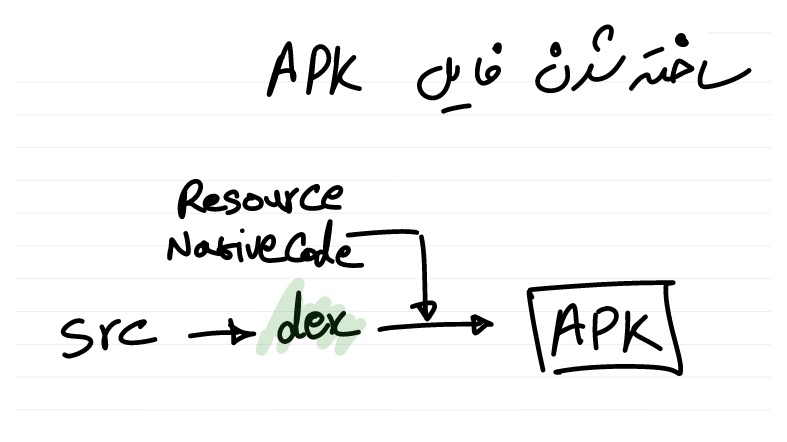 ساخته شدن فایل APK
Resource
Native Code
src → dex → APK